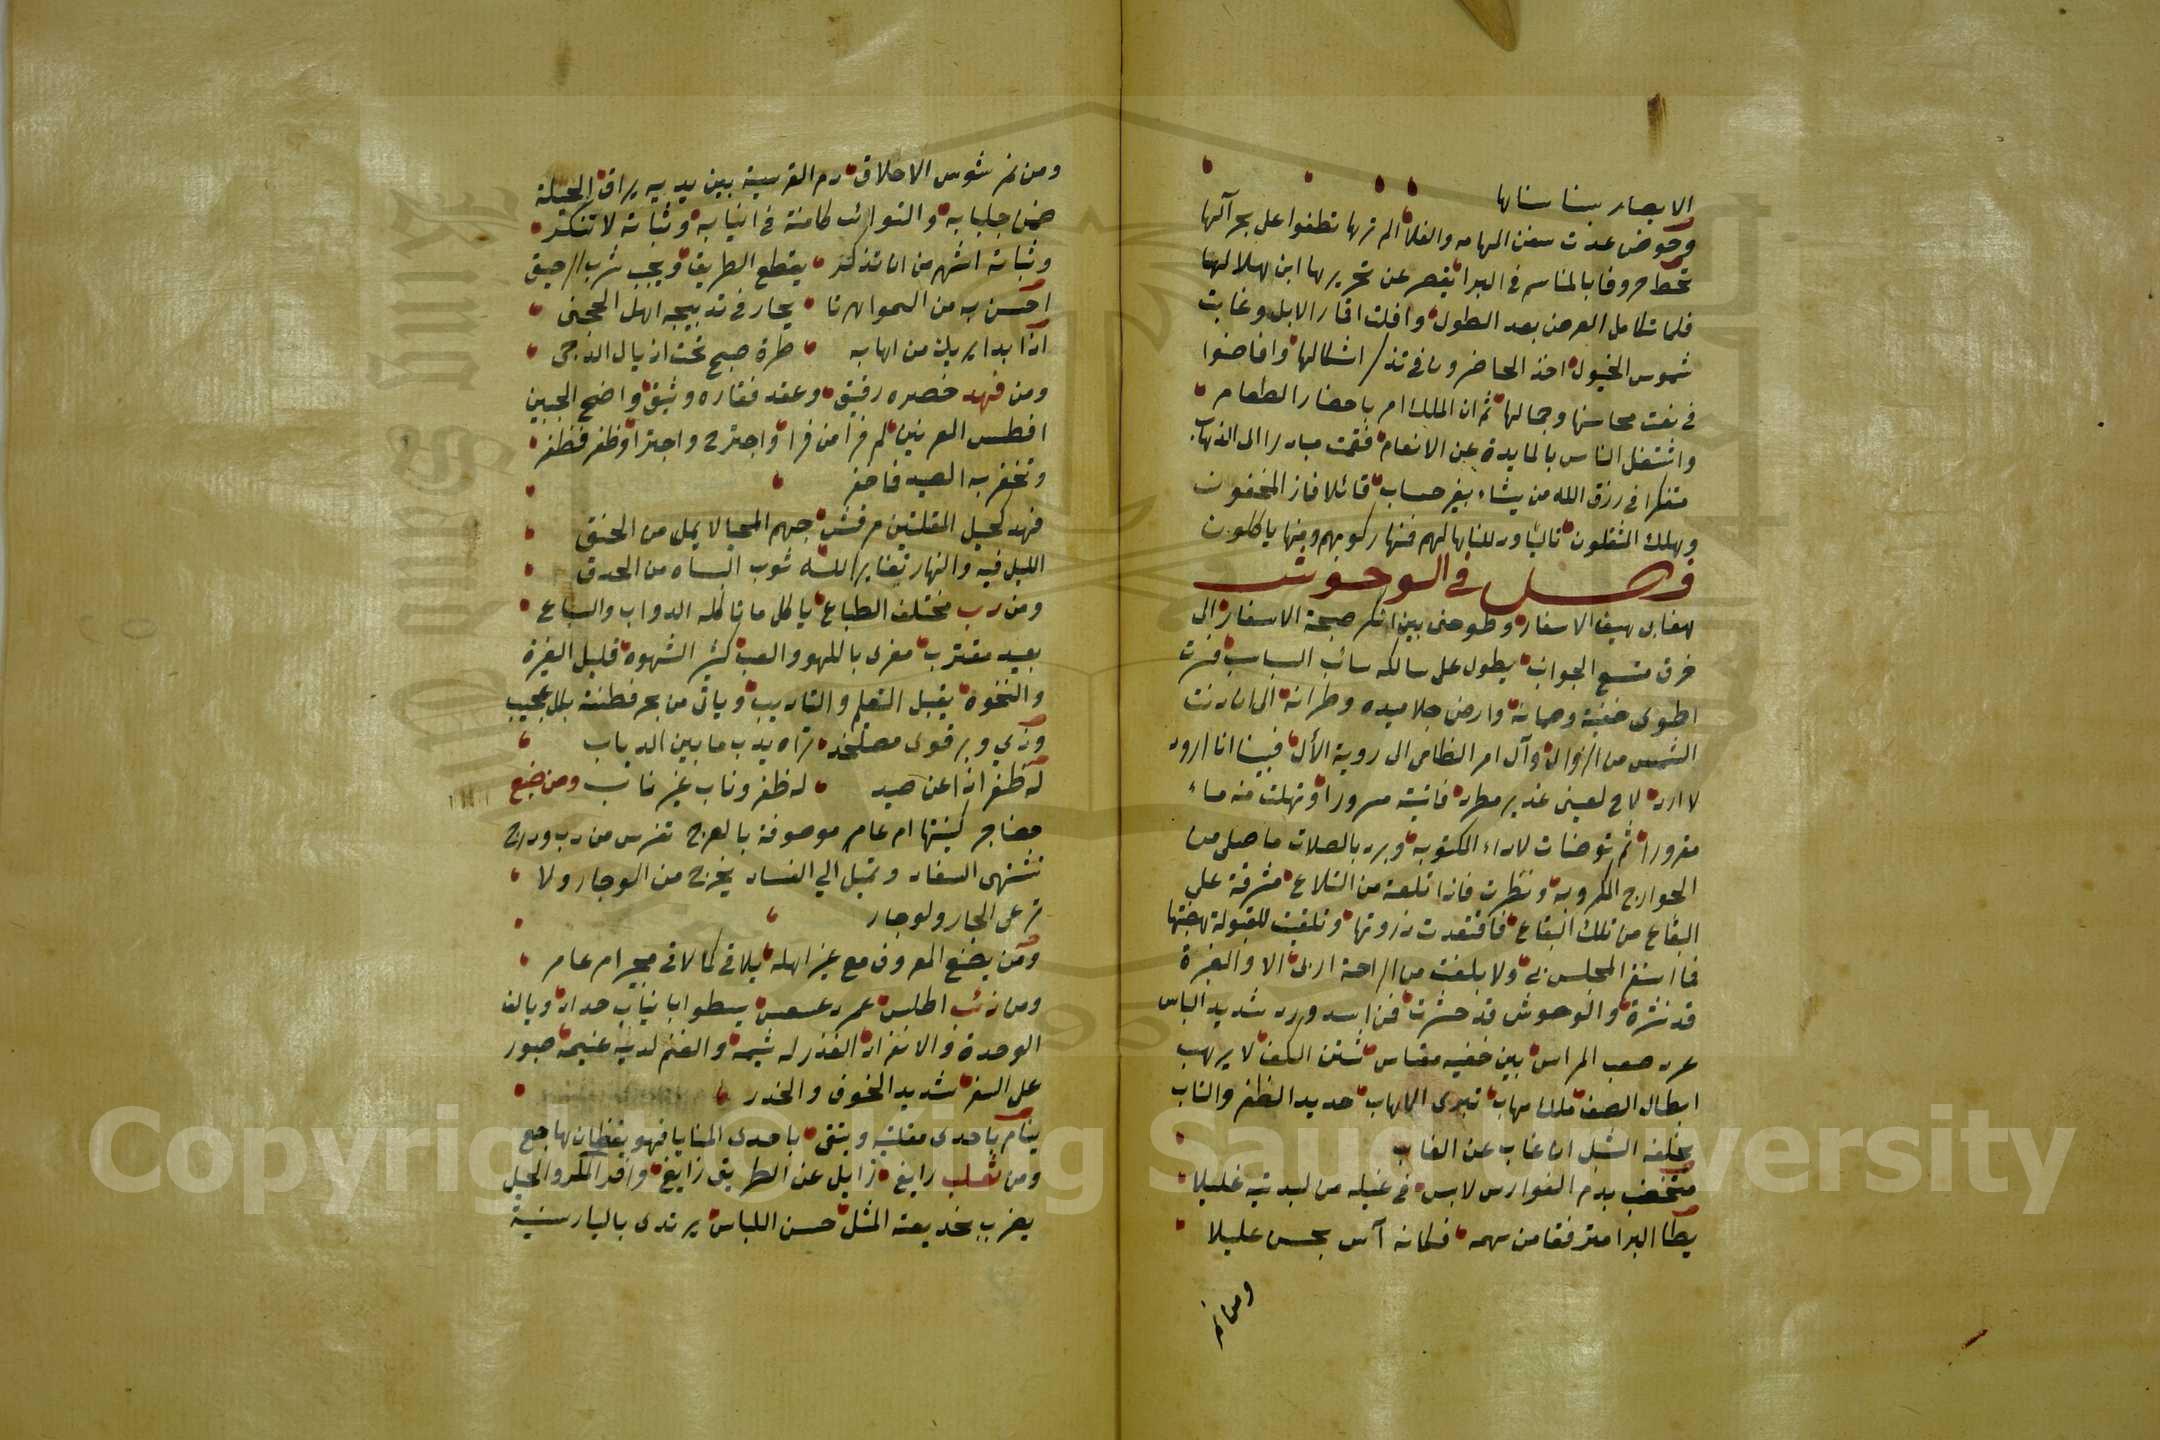 الابصار بسنا سنابها
وخوض غدت سفن المهامه والفلا الم ترها تطفوا على بحر آلها
تخط حروفا بالمناسم في البرا يقصر عن تحريرها ابن هلالها
فلما تكامل العرض بعد الطول وافلت اقمار الابل وغابت
شموس الخيول اخذ الحاضرون في تذكر اشكالها وافاضوا
في نعت محاسنها وجمالها ثم ان الملك امر باحضار الطعام
واشتغل الناس بالمايدة عن الانعام فقمت مبادرا الى الذهاب
متفكرا في رزق الله من يشاء بغير حساب قائلا فاز المخفون
وهلك المثقلون تاليا وذللناها لهم فمنها ركوبهم ومنها ياكلون
فصل في الوحوش
هفا بي هيف الاسفار وطوحني بين انكر صبحة الاسفار الى
خرق متسع الجوانب يطول على سالكه سائب السباسب فسرت
اطوى خفية وصمانة وارض جلاميده وظرانه الى ان دنت
الشمس من الزوال وآل امر الظامى الى روية الآل فبينا انا ارود
لا ارد لاح لعيني غدير مطرد فاتيته مسرورا ونهلت منه ماء
مقرورا ثم توضات لاداء المكتوبه وبرد بالصلات ما صلى من
الجوارح المكروبه ونظرت فاذا تلعة من التلاع مشرفة على
البقاع من تلك البقاع فاقتعدت ذروتها وتلقيت للقبولة نهضتها
فما استقر المجلس بي ولا بلغت من الراحة اربى الا والغبرة
قد نشرة والوحوش قد حشرت فمن اسد ورد شديد الباس
عرد صعب المراس بين خفيه مقباس شثن الكف لا يرهب
ابطال الصف ملك مهاب تبرى الاهاب حديد الظفر والناب
يخلفه الشبل ان غاب عن الغاب
متخضب بدم الفوارس لابس في غيله من لبدتيه غليلا
يطا البرا مترفقا من سهمه فكانه آس يجس عليلا
ومن نمر
ومن نمر شوس الاخلاق دم الفريسة بين يديه يراق الجبلة
ضمن جلبابه والنوائب كامنة في انيابه وثباته لا تنكر
وثباته اشهر من ان تذكر يقطع الطريق ويجب شرب الرحيق
احسن به من الموان نا يحار في تدبيجه اهل الحجى
اذا بدا يريك من اهابه طرة صبح تحت اذيال الدجى
ومن فهد خصره رقيق وعقد فقاره وثيق واضح الجبين
افطس العرنين لم فرا من فرا واجترح واجترا وظفر فظفر
وتخفر به الصيد فاخفر
فهد كحيل المقلتين مرقش جهم المحيا لا يمل من الحنق
الليل فيه والنهار تغايرا ثوب البساه من الحدق
ومن دب مختلف الطباع ياكل ما تاكله الدواب والسباع
بعيد مقترب مغرى باللهو والعب كثير الشهوه قليل الغرة
والنخوه يقبل التعليم والتاديب وياتى من بحر فطنته بكل عجيب
وذي وبر قوى مصلخد تراه يدب ما بين الدباب
له ظفر اذا عن صيد له ظفر وناب غير ناب ومن ضبع
حضاجر كنيتها ام عامر موصوفة بالعرج تفرس من دب ودرج
تشتهى السفاد وتميل الى الفساد يخرج من الوجار ولا
ترعى الجار ولو جار
ومن يصنع المعروف مع غير اهله يلاقي كما لاقى مجير ام عامر
ومن ذئب اطلس عمرد عسعس يسطوا بانياب حداد ويالف
الوحدة والانفراد الغدر له شيمه والغنم لديه غنيمه صبور
على السفر شديد الخوف والحذر
ينام باحدى مقلتيه ويتقى باحدى المنايا فهو يقظان هاجع
ومن ثعلب رايغ زايل عن الطريق زايغ وافر المكر والحيل
يضرب بخديعته المثل حسن اللباس يرتدى بالبارسنية
Copyright © King Saud University